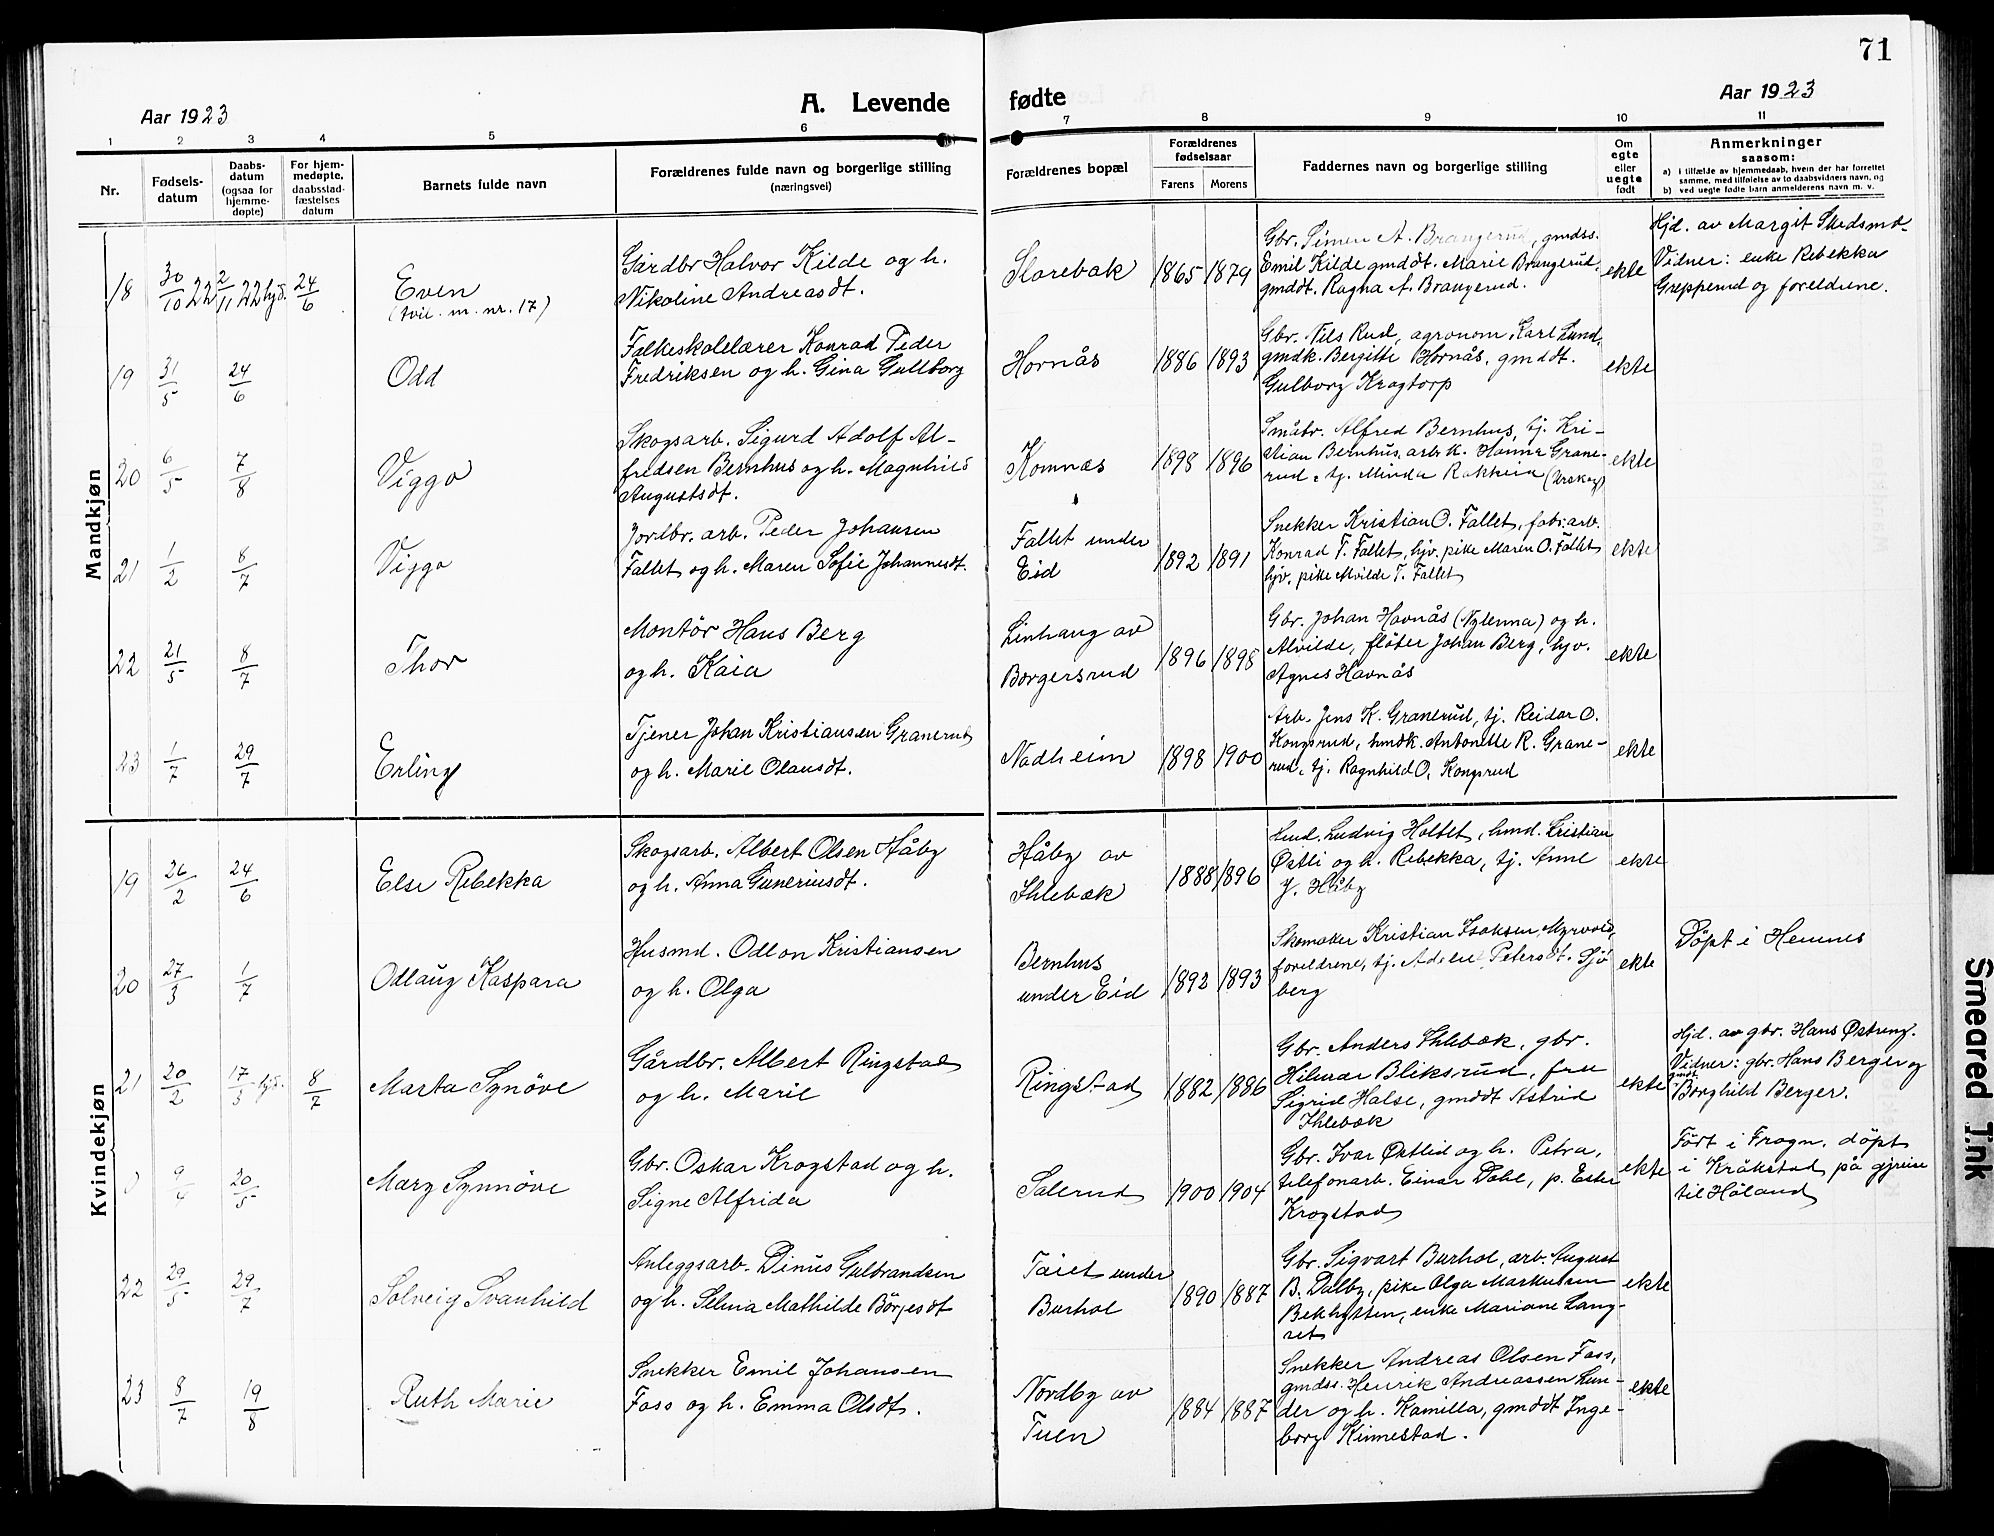 71
Aar 1923
A. Levende fødte
Aar 1923
1 2 3 4 5 6 7 8 9 10 11
Nr.
Fødsels-
datum
Daabs-
datum
(ogsaa for
hjemme-
døpte)
For hjem-
medøpte,
daabsstad-
fæstelses
datum
Barnets fulde navn
Forældrenes fulde navn og borgerlige stilling
(næringsvei)
Forældrenes bopæl
Forældrenes
fødselsaar
Farens Morens
Faddernes navn og borgerlige stilling
Om
egte
eller
uegte
født
Anmerkninger
saasom:
a) i tilfælde av hjemmedaab, hvem der har forrettet
samme, med tilføielse av to daabsvidners navn, og
b) ved uegte fødte barn anmelderens navn m. v.
Mandkjøn
18 30/10 22 2/11 22 hjd. 24/6
Even
(tvil. m. nr. 17)
Gårdbr Halvor Kilde og h.
Nikoline Andreasdt.
Slorebak
1865 1879
Gbr. Simen A. Brangerud, gmdss.
Emil Kilde gmddt. Marie Brangerud,
gmddt. Ragna A. Brangerud.
ekte
Hjd. av Margit Skedsmo
Vidner: enke Rebekka
Grepperud og foreldrene.
19 31/5 24/6
Odd
Folkeskolelærer Konrad Peder
Fredriksen og h. Gina Gullborg
Hornås
1886 1893
Gbr. Nils Rud, agronom Karl Lund,
gmdk. Bergitte Hornås, gmddt.
Gulborg Krogtorp
ekte
20 6/5 7/8
Viggo
Skogsarb. Sigurd Adolf Al-
fredsen Bernhus og h. Magnhild
Augustsdt.
Komnæs
1898 1896
Småbr. Alfred Bernhus, tj. Kri-
stian Bernhus, arb.k. Hanna Grane-
rud, tj. Minda Rakkeia (Urskog)
ekte
21 1/2 8/7
Viggo
Jordbr. arb. Peder Johansen
Fallet og h. Maren Sofie Johannesdt.
Fallet under
Eid
1892 1891
Snekker Kristian O. Fallet, fabr.arb.
Konrad T. Fallet, hjv. pike Maren O. Fallet
hjv. pike Mvilde T. Fallet
ekte
22 21/5 8/7
Thor
Montör Hans Berg
og h. Kaia
Linhaug av
Borgersrud
1896 1898
Gbr. Johan Havnås (Nylenna) og h.
Alvilde, flöter Johan Berg, hjv.
Agnes Havnås
ekte
23 1/7 29/7
Erling
Tjener Johan Kristiansen Granerud
og h. Marie Olausdt.
Nadheim
1898 1900
Arb. Jens K. Granerud, tj. Reidar O.
Kongsrud, hmdk. Antonette R. Grane-
rud, tj. Ragnhild O. Kongsrud
ekte
Kvindekjøn
19 26/2 24/6
Else Rebekka
Skogsarb. Albert Olsen Håby
og h. Anna Guneriusdt.
Håby av
Ihlebæk
1888 1896
Hmd. Ludvig Holtet, hmd. Kristian
Østli og h. Rebekka, tj. Anne
J. Håby
ekte
20 27/3 1/7
Odlaug Kaspara
Husmd. Odlon Kristiansen
og h. Olga
Bernhus
under Eid
1892 1893
Skomaker Kristian Isaksen Myrvold,
foreldrene, tj. Adele Petersdt. Sjö
berg
ekte
Döpt i Hemnes
21 20/2 17/3 hjd. 8/7
Marta Synöve
Gårdbr. Albert Ringstad
og h. Marie
Ringstad
1882 1886
Gbr. Anders Ihlebæk, gbr.
Hilmar Bliksrud, fru
Sigrid Halse, gmddt Astrid
Ihlebæk
ekte
Hjd. av gbr. Hans Østreng.
Vidner: gbr. Hans Berger og
gmdt. Borghild Berger.
0 9/4 20/5
Mary Synnöve
Gbr. Oskar Krogstad og h.
Signe Alfrida
Salerud
1900 1904
Gbr. Ivar Østlid og h. Petra,
telefonarb. Einar Dahl, p. Ester
Krogstad
ekte
Fört i Frogn. döpt
i Kråkstad på gjreise
til Höland
22 29/5 29/7
Solveig Svanhild
Anleggsarb. Dinus Gulbrandsen
og h. Selma Mathilde Börjesdt
Taiet under
Burhol
1890 1887
Gbr. Sigvart Burhol, arb. August
B. Dalby, pike Olga Markussen
Bekhytten, enke Mariane Lang-
ret
ekte
23 8/7 19/8
Ruth Marie
Snekker Emil Johansen
Foss og h. Emma Olsdt.
Nordby av
Tuen
1884 1887
Snekker Andreas Olsen Foss,
gmdss. Henrik Andreassen Lun-
der og h. Kamilla, gmddt Inge-
borg Kinnestad.
ekte
Smeared Ink